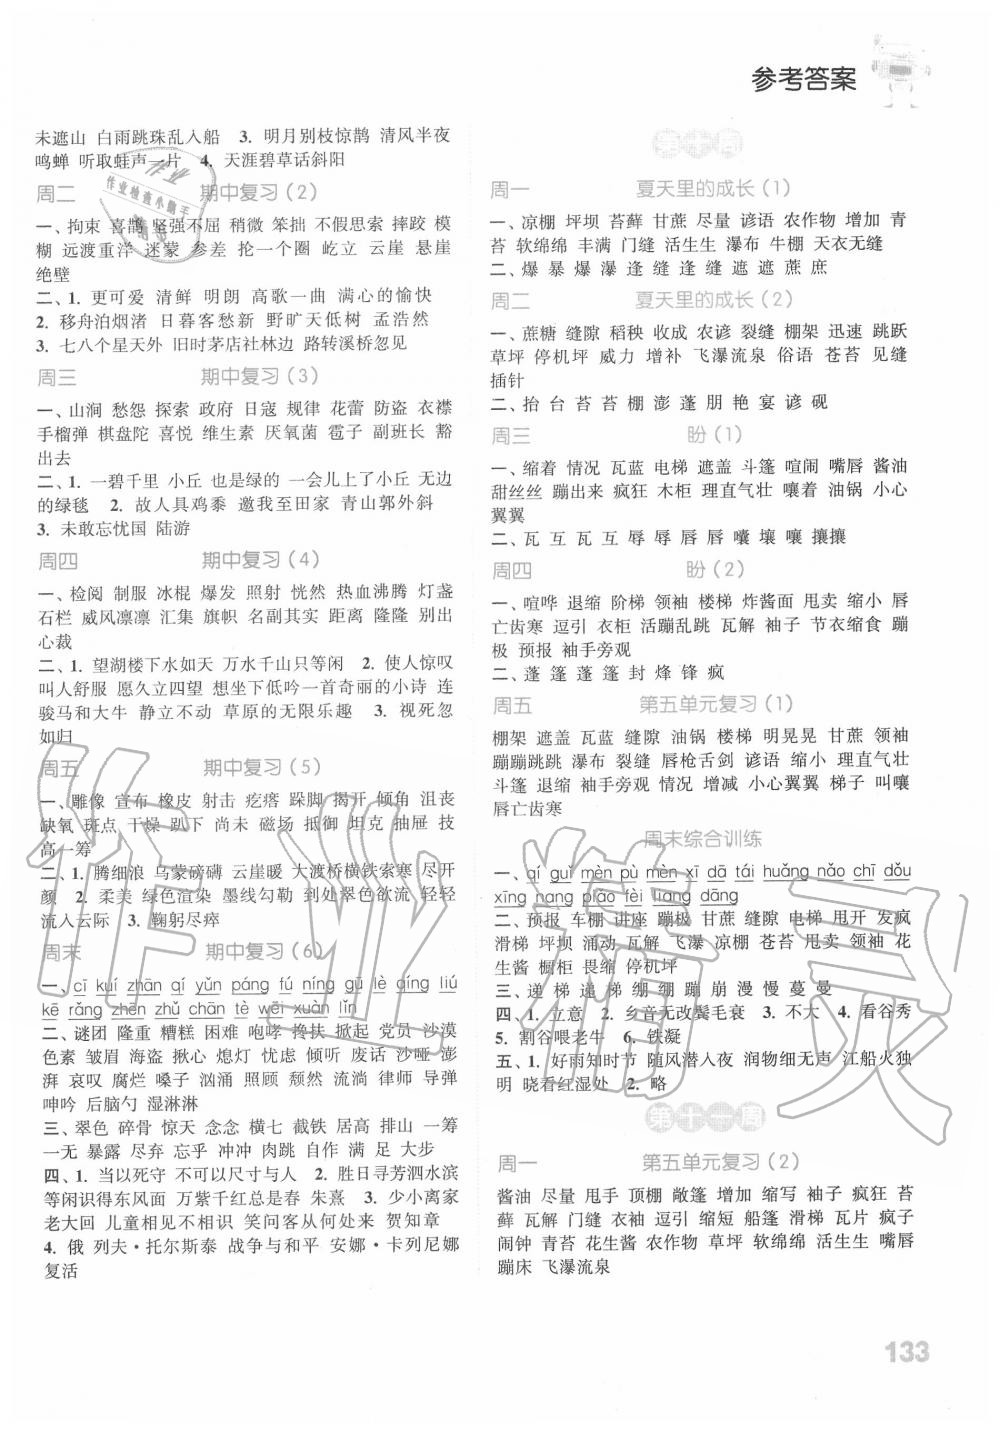 参考答案
未遮山 白雨跳珠乱入船 3. 明月别枝惊鹊 清风半夜
鸣蝉 听取蛙声一片 4. 天涯碧草话斜阳
周二 期中复习(2)
一、拘束 喜鹊 坚强不屈 稍微 笨拙 不假思索 摔跤 模
糊 远渡重洋 迷蒙 参差 抡一个圆圈 屹立 云崖 悬崖
绝壁
二、1. 更可爱 清鲜 明朗 高歌一曲 满心的愉快
2. 移舟泊烟渚 日暮客愁新 野旷天低树 孟浩然
3. 七八个星天外 旧时茅店社林边 路转溪桥忽见
周三 期中复习(3)
一、山涧 愁怨 探索 政府 日寇 规律 花蕾 防盗 衣襟
手榴弹 棋盘陀 喜悦 维生素 厌氧菌 雹子 副班长 豁
出去
二、1. 一碧千里 小丘 也是绿的 一会儿上了小丘 无边
的绿毯 2. 故人具鸡黍 邀我至田家 青山郭外斜
3. 未敢忘忧国 陆游
周四 期中复习(4)
一、检阅 制服 冰棍 爆发 照射 恍然 热血沸腾 灯盏
石栏 威风凛凛 汇集 旗帜 名副其实 距离 隆隆 别出
心裁
二、1. 望湖楼下水如天 万水千山只等闲 2. 使人惊叹
叫人舒服 愿久立四望 想坐下低吟一首奇丽的小诗 连
骏马和大牛 静立不动 草原的无限乐趣 3. 视死忽
如归
周五 期中复习(5)
一、雕像 宣布 橡皮 射击 疙瘩 跺脚 揭开 倾角 沮丧
缺氧 斑点 干燥 趴下 尚未 磁场 抵御 坦克 抽屉 技
高一筹
二、1. 腾细浪 乌蒙磅礴 云崖暖 大渡桥横铁索寒 尽开
颜 2. 柔美 绿色渲染 墨线勾勒 到处翠色欲流 轻轻
流入云际 3. 鞠躬尽瘁
周末 期中复习(6)
一、cī kuí zhān qí yún páng fú níng gū lè qíng liú
kē rǎng zhēn zhǔ chān tè wēi xuàn lǐn
二、谜团 隆重 糟糕 困难 咆哮 搀扶 掀起 党员 沙漠
色素 皱眉 海盗 揪心 熄灯 忧虑 倾听 废话 沙哑 澎
湃 哀叹 腐烂 嗓子 汹涌 照顾 颓然 流淌 律师 导弹
呻吟 后脑勺 湿淋淋
三、翠色 碎骨 惊天 念念 横七 截铁 居高 排山 一筹
一无 暴露 尽弃 忘乎 冲冲 肉跳 自作 满足 大步
四、1. 当以死守 不可以尺寸与人 2. 胜日寻芳泗水滨
等闲识得东风面 万紫千红总是春 朱熹 3. 少小离家
老大回 儿童相见不相识 笑问客从何处来 贺知章
4. 俄 列夫·托尔斯泰 战争与和平 安娜·卡列尼娜
复活
第十周
周一 夏天里的成长(1)
一、凉棚 坪坝 苔藓 甘蔗 尽量 谚语 农作物 增加 青
苔 软绵绵 丰满 门缝 活生生 瀑布 牛棚 天衣无缝
二、爆 暴 爆 瀑 逢 缝 逢 缝 遮 遮 蔗 庶
周二 夏天里的成长(2)
一、蔗糖 缝隙 稻秧 收成 农谚 裂缝 棚架 迅速 跳跃
草坪 停机坪 威力 增补 飞瀑流泉 俗语 苍苔 见缝
插针
二、抬 台 苔 苔 棚 澎 蓬 朋 艳 宴 谚 砚
周三 盼(1)
一、缩着 情况 瓦蓝 电梯 遮盖 斗篷 喧闹 嘴唇 酱油
甜丝丝 蹦出来 疯狂 木柜 理直气壮 嚷着 油锅 小心
翼翼
二、瓦 互 瓦 互 辱 辱 唇 唇 囔 壤 嚷 攘攘
周四 盼(2)
一、喧哗 退缩 阶梯 领袖 楼梯 炸酱面 甩卖 缩小 唇
亡齿寒 逗引 衣柜 活蹦乱跳 瓦解 袖子 节衣缩食 蹦
极 预报 袖手旁观
二、蓬 篷 蓬 篷 封 烽 锋 疯
周五 第五单元复习(1)
棚架 遮盖 瓦蓝 缝隙 油锅 楼梯 明晃晃 甘蔗 领袖
蹦蹦跳跳 瀑布 裂缝 唇枪舌剑 谚语 缩小 理直气壮
斗篷 退缩 袖手旁观 情况 增减 小心翼翼 梯子 叫嚷
唇亡齿寒
周末综合训练
一、qí guǐ mèn pù mèn xī dā tái huǎng nǎo chī dǒu
xīng nang páo fèi liang dāng
二、预报 车棚 讲座 蹦极 甘蔗 缝隙 电梯 甩开 发疯
滑梯 坪坝 涌动 瓦解 飞瀑 凉棚 苍苔 甩卖 领袖 花
生酱 橱柜 畏缩 停机坪
三、递 梯 递 梯 绷 绷 蹦 崩 漫 慢 蔓 曼
四、1. 立意 2. 乡音无改鬓毛衰 3. 不大 4. 看谷秀
5. 割谷喂老牛 6. 铁凝
五、1. 好雨知时节 随风潜入夜 润物细无声 江船火独
明 晓看红湿处 2. 略
第十一周
周一 第五单元复习(2)
酱油 尽量 甩手 顶棚 敞篷 增加 缩写 袖子 疯狂 苔
藓 瓦解 门缝 衣袖 逗引 缩短 船篷 滑梯 瓦片 疯子
闹钟 青苔 花生酱 农作物 草坪 软绵绵 活生生 嘴唇
蹦床 飞瀑流泉
133